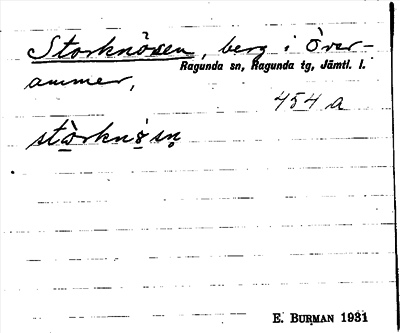 Storknösen, berg i Över-
Ragunda sn, Ragunda tg, Jämtl. l.
ammer,
454 a
stòrknö̀sn̥
E. BURMAN 1931